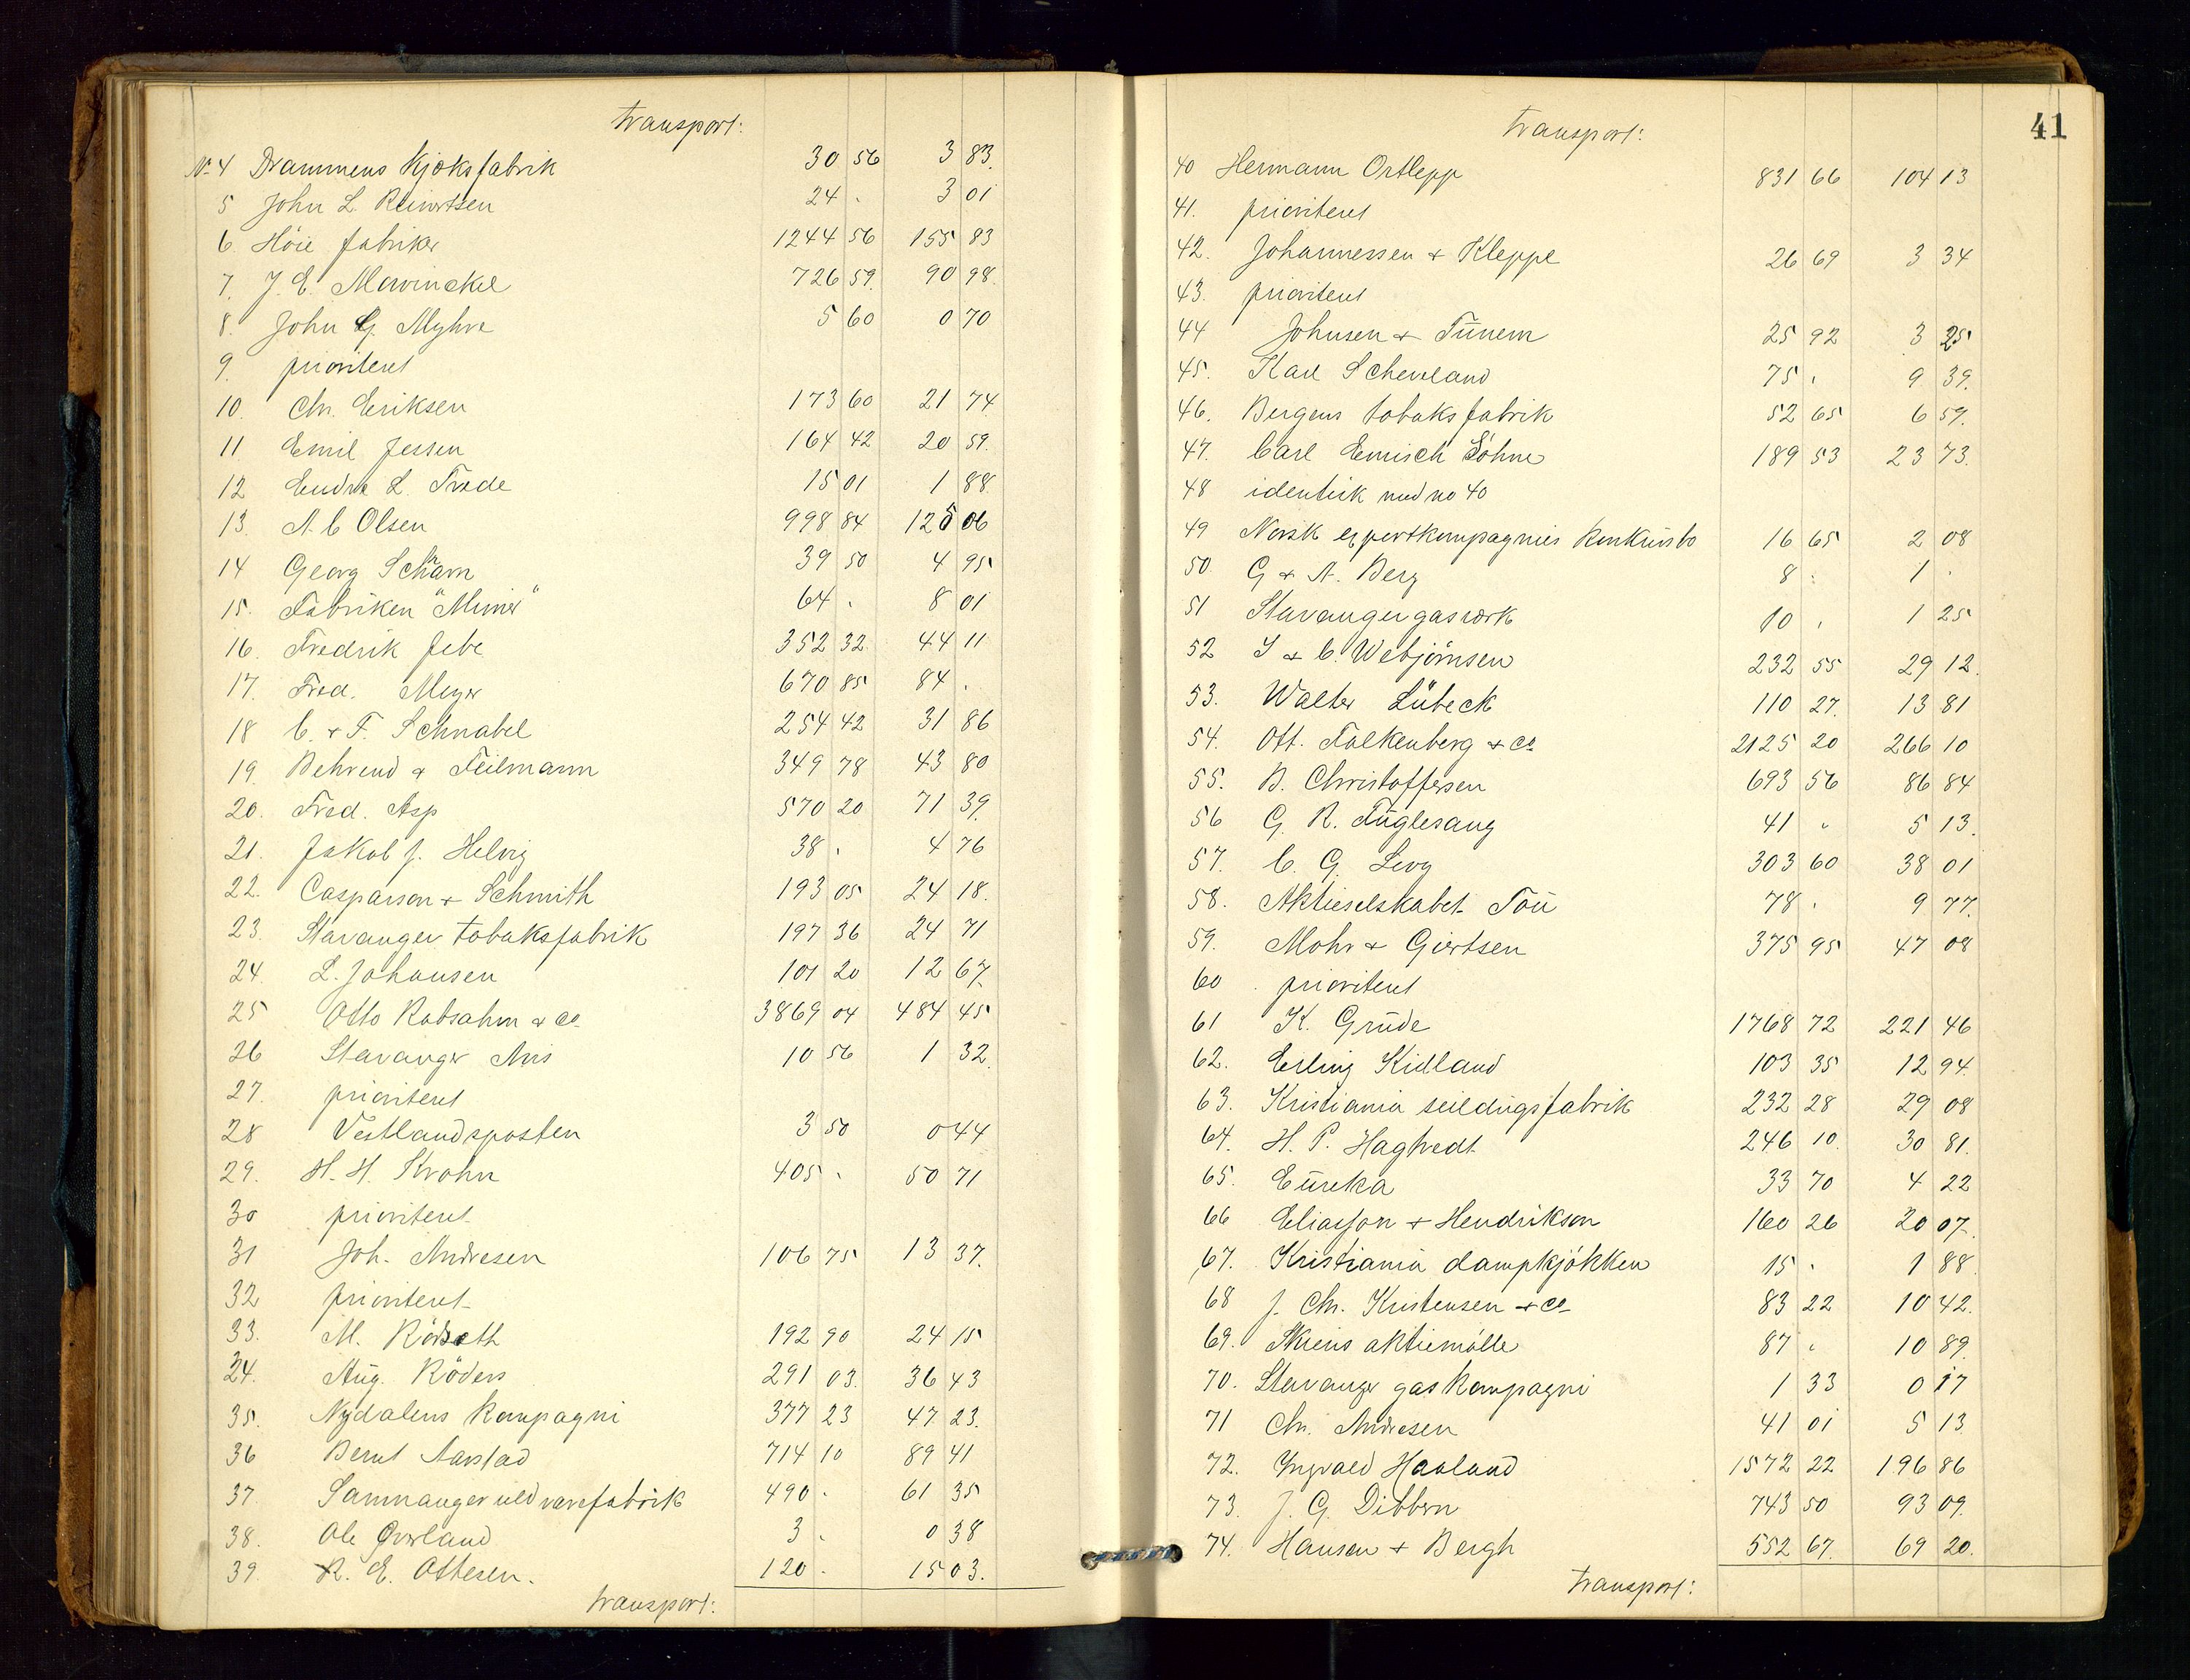 transport:
No 4 Drammens Kjæksfabrik 30 56 3 83.
5 John L. Reinertsen 24 . 3 01
6. Höie fabriker 1244 56 155 83
7. J. E. Mowinckel 726 59. 90 98.
8. John G. Myhre 5 60 0 70
9. prioritert
10. Chr. Eriksen 173 60 21 74
11 Emil Jessen 164 42 20 59.
12 Endre L. Træde 15 01 1 88
13. A. C Olsen 998 84 125 06
14 Georg Scharn 39 50 4 95
15. Fabriken "Mimer" 64 . 8 01
16. Fredrik Jebe 352 32. 44 11
17. Fred. Meyer 670 85 84 .
18 C. & F. Schnabel 254 42 31 86
19. Behrend & Feilmann 349 78 43 80
20. Fred. Asp 570 20 71 39.
21. Jakob J. Helvig 38 . 4 76
22. Casparson & Schmith 193 05 24 18.
23. Stavanger tobaksfabrik 197 36 24 71
24 L. Johansen 101 20 12 67.
25 Otto Robsahm & co 3869 04 484 45
26 Stavanger Avis 10 56 1 32.
27. prioritert
28 Vestlandsposten 3 50 0 44
29. H. H. Krohn 405 . 50 71
30 prioritert
31 Joh. Andresen 106 75 13 37.
32 prioritert
33. M. Rödseth 192 90 24 15
34. Aug. Röders 291 03. 36 43
35. Nydalens kompagni 377 23 47 23.
36 Bernt Aarstad 714 10 89 41
37. Samnanger uldvarefabrik 490 . 61 35
38. Ole Qverland 3 . 0 38
39. R. E. Ottesen. 120 . 15 03.
transport:
41
transport:
40 Hermann Ortlepp 831 66 104 13
41. prioritert
42. Johannessen & Kleppe 26 69 3 34
43. prioritert
44 Johnsen & Tunem 25 92 3 25
45. Karl Scheveland 75 . 9 39.
46. Bergens tobaksfabrik 52 65 6 59.
47. Carl Emisch Söhne 189 53 23 73.
48 identisk med no 40
49 Norsk exportkompagnies konkursbo 16 65 2 08
50. G & A. Berg 8 . 1 .
51 Stavanger gasværk 10 . 1 25
52 I & C. Webjörnsen 232 55 29 12.
53. Walter Lübeck 110 27. 13 81
54. Ott. Falkenberg & co 2125 20 266 10
55. B. Christoffersen 693 56 86 84
56 G. R. Fuglesang 41 " 5 13.
57. C. G. Levy 303 60 38 01
58. Aktieselskabet Tou 78 . 9 77.
59. Mohr & Giertsen 375 95 47 08
60 prioritert
61 K. Grude 1768 72 221 46
62. Erling Kidland 103 35 12 94.
63. Kristiania seildugsfabrik 232 28 29 08
64. H. P. Hagtvedt 246 10. 30 81.
65. Eureka 33 70 4 22
66 Eliasson & Hendrikson 160 26 20 07.
67. Kristiania dampkjökken 15 . 1 88.
68 J. Chr. Kristensen & co 83 22 10 42.
69. Skiens aktiemölle 87 " 10 89.
70. Stavanger gaskompagni 1 33 0 17
71 Chr. Andresen 41 01 5 13
72. Ingvald Haaland 1572 22 196 86
73. J. G. Dibbern 743 50 93 09.
74. Hansen & Bergh 552 67. 69 20.
transport: